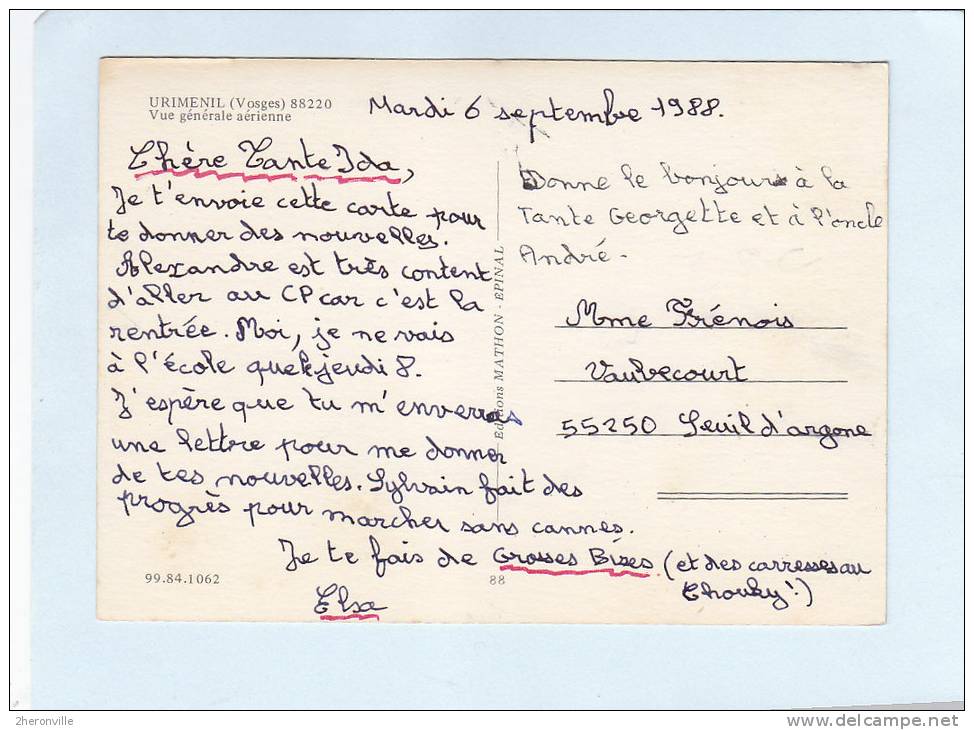 URIMENIL (Vosges) 88220
Vue générale aérienne
Mardi 6 septembre 1988.
Chère Tante Ida,
Je t'envoie cette carte pour
te donner des nouvelles.
Alexandre est très content
d'aller au CP car c'est la
rentrée. Moi, je ne vais
à l'école que le jeudi 8.
J'espère que tu m'enverras
une lettre pour me donner
de tes nouvelles. Sylvain fait des
progrès pour marcher sans cannes.
Je te fais de Grosses Bises (et des carresses au
Chouky!)
Elsa
Donne le bonjour à la
Tante Georgette et à l'oncle
André.
Mme Frénois
Vaubecourt
55250 Seuil d'argone
Editions MATHON - EPINAL
99.84.1062
88
2heronville
www.delcampe.net